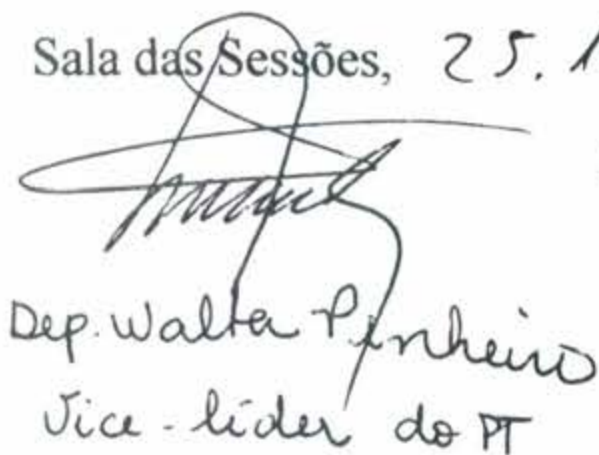 Sala das Sessões, 25.1
Dep. Walter Pinheiro
Vice-líder do PT